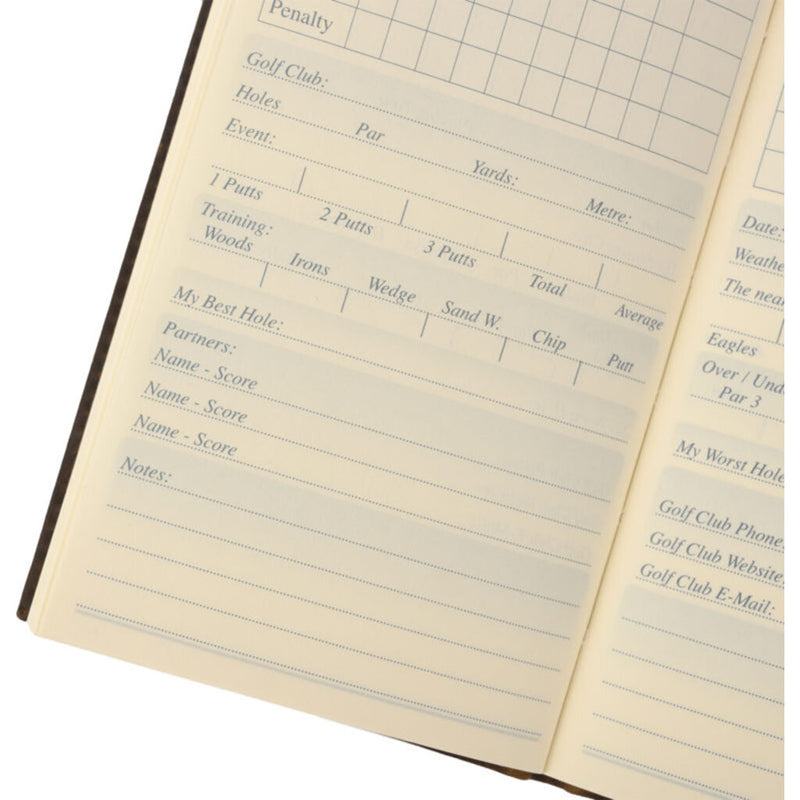 Penalty
Golf Club:
Holes Par Yards: Metre:
Event:
1 Putts 2 Putts 3 Putts Total Average
Training:
Woods Irons Wedge Sand W. Chip Putt
My Best Hole:
Partners:
Name - Score
Name - Score
Name - Score
Notes:
Date:
Weathe
The nea
Eagles
Over / Und
Par 3
My Worst Hole
Golf Club Phone
Golf Club Website
Golf Club E-Mail: